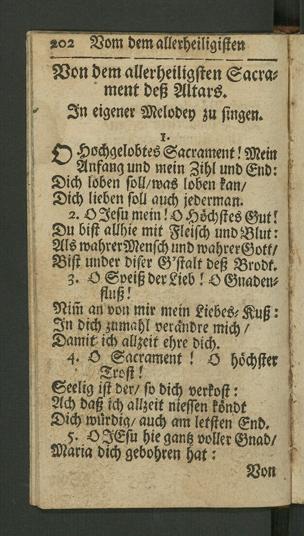 202 Vom dem allerheiligisten
Von dem allerheiligsten Sacra-
ment deß Altars.
In eigener Melodey zu singen.
1.
O Hochgelobtes Sacrament! Mein
Anfang und mein Zihl und End:
Dich loben soll/was loben kan/
Dich lieben soll auch jederman.
2. O Jesu mein! O Höchstes Gut!
Du bist allhie mit Fleisch und Blut:
Als wahrer Mensch und wahrer Gott/
Bist under diser G'stalt deß Brodt.
3. O Speiß der Lieb! O Gnaden-
fluß!
Nim̃ an von mir mein Liebes-Kuß:
In dich zumahl verändre mich/
Damit ich allzeit ehre dich.
4. O Sacrament! O höchster
Trost!
Seelig ist der/ so dich verkost:
Ach daß ich allzeit niessen köndt
Dich würdig/ auch am letsten End.
5. O JEsu hie gantz voller Gnad/
Maria dich gebohren hat:
Von